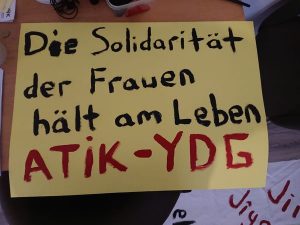 Die Solidarität
der Frauen
hält am Leben
ATiK-YDG
Jin
Jiya